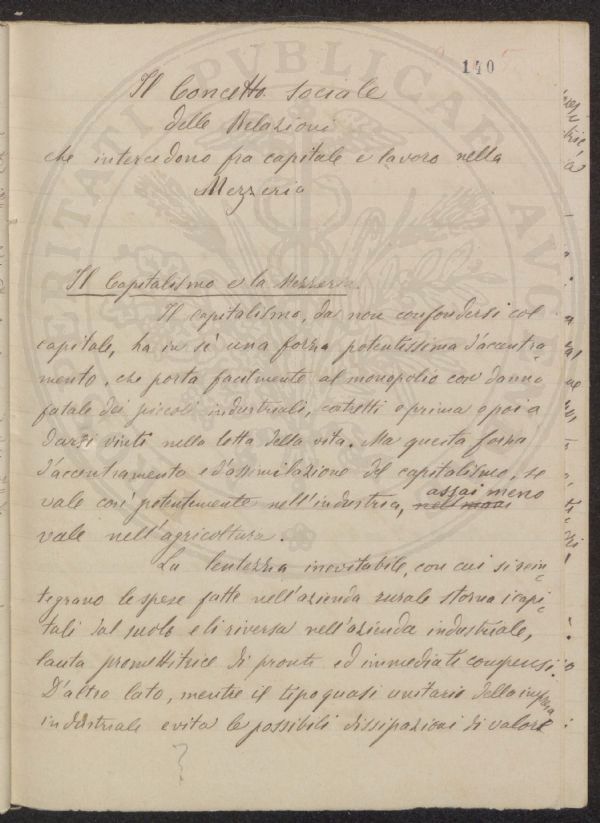 140
Il Concetto sociale
delle Relazioni
che intercedono fra capitale e lavoro nella
Mezzeria
Il Capitalismo e la Mezzeria.
Il capitalismo, da non confondersi col
capitale, ha in sè una forza potentissima d'accentra-
mento, che porta facilmente al monopolio con danno
fatale dei piccoli industriali, costretti o prima o poi a
darsi vinti nella lotta della vita. Ma questa forza
d'accentramento e d'assimilazione del capitalismo, se
vale così potentemente nell'industria, assai meno
vale nell'agricoltura.
La lentezza inevitabile, con cui si rein-
tegrano le spese fatte nell'azienda rurale storna i capi-
tali dal suolo e li riversa nell'azienda industriale,
lauta promettitrice di pronti ed immediati compensi.
D'altro lato, mentre il tipo quasi unitario della impresa
industriale evita le possibili dissipazioni di valore
?